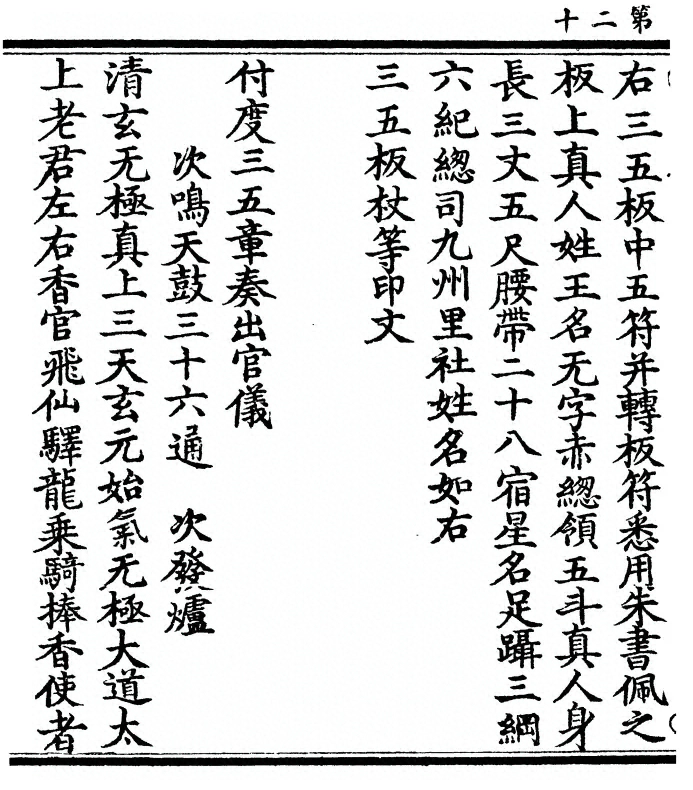 第二十
右三五板中五符并轉板符悉用朱書佩之
板上真人姓王名无字赤總領五斗真人身
長三丈五尺腰帶二十八宿星名足躡三綱
六紀總司九州里社姓名如右
三五板杖等印文
付度三五章奏出官儀
次鳴天鼓三十六通　次發爐
清玄无極真上三天玄元始氣无極大道太
上老君左右香官飛仙驛龍乘騎捧香使者